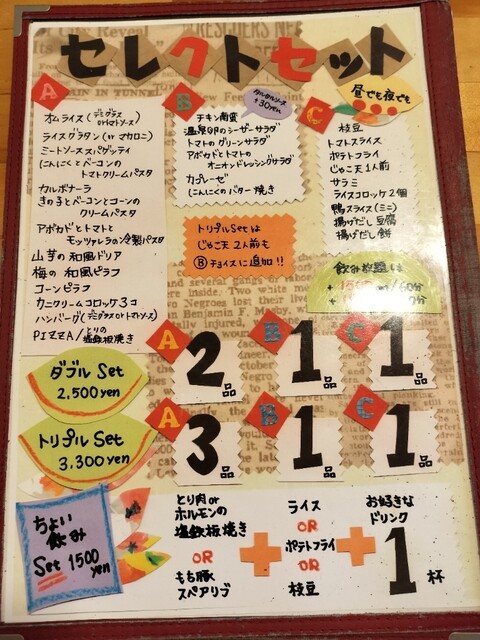 セレクトセット
昼でも夜でも
A
オムライス(デミグラス
orトマトソース)
ライスグラタン(or マカロニ)
ミートソーススパゲッティ
にんにくとベーコンの
トマトクリームパスタ
カルボナーラ
きの子とベーコンとコーンの
クリームパスタ
アボカドとトマトと
モッツァレラの冷製パスタ
山芋の和風ドリア
梅の和風ピラフ
コーンピラフ
カニクリームコロッケ3コ
ハンバーグ(デミグラスorトマトソース)
PIZZA/とりの
塩鉄板焼き
B
タルタルソース
+30yen
チキン南蛮
温泉卵のシーザーサラダ
トマトのグリーンサラダ
アボカドとトマトの
オニオンドレッシングサラダ
カプレーゼ
にんにくのバター焼き
トリプルSetは
じゃこ天2人前も
Bチョイスに追加!!
C
枝豆
トマトスライス
ポテトフライ
じゃこ天1人前
サラミ
ライスコロッケ2個
鴨スライス(ミニ)
揚げだし豆腐
揚げだし餅
飲み放題は
ダブルSet
2,500yen
A 2品
B 1品
C 1品
トリプルSet
3,300yen
A 3品
B 1品
C 1品
ちょい
飲み
Set 1500
yen
とり肉or
ホルモンの
塩鉄板焼き
OR
もち豚
スペアリブ
+
ライス
OR
ポテトフライ
OR
枝豆
+
お好きな
ドリンク
1杯